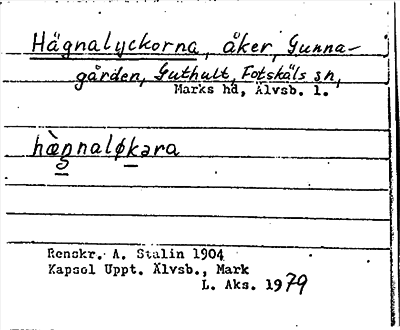 Hägnalyckorna, åker, Gunna-
gården, Guthult, Fotskäls sn,
Marks hd, Älvsb. l.
hàgnaløkəra
Renskr. A. Stalin 1904
Kapsel Uppt. Älvsb., Mark
L. Aks. 1979